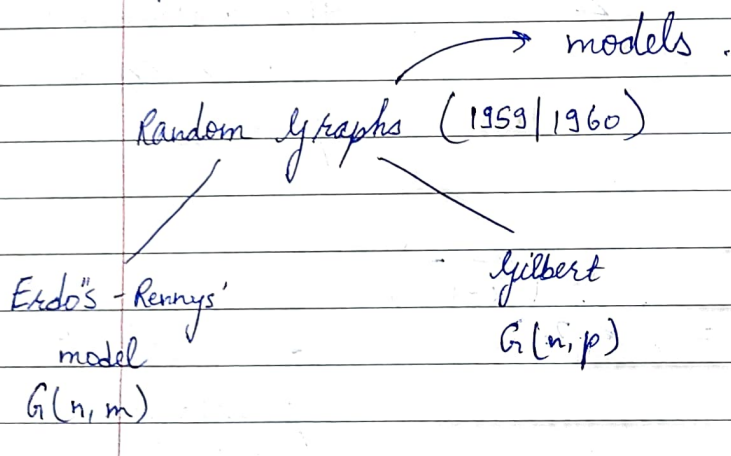 models.
Random Graphs (1959/1960)
Erdo"s - Rennys'
model
G(n, m)
Gilbert
G(n, p)